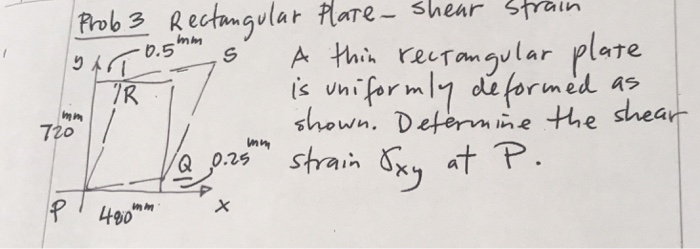 Prob 3 Rectangular Plate - Shear Strain
0.5 mm
y
S
R
720 mm
Q 0.25 mm
P 480 mm x
A thin rectangular plate
is uniformly deformed as
shown. Determine the shear
strain γxy at P.